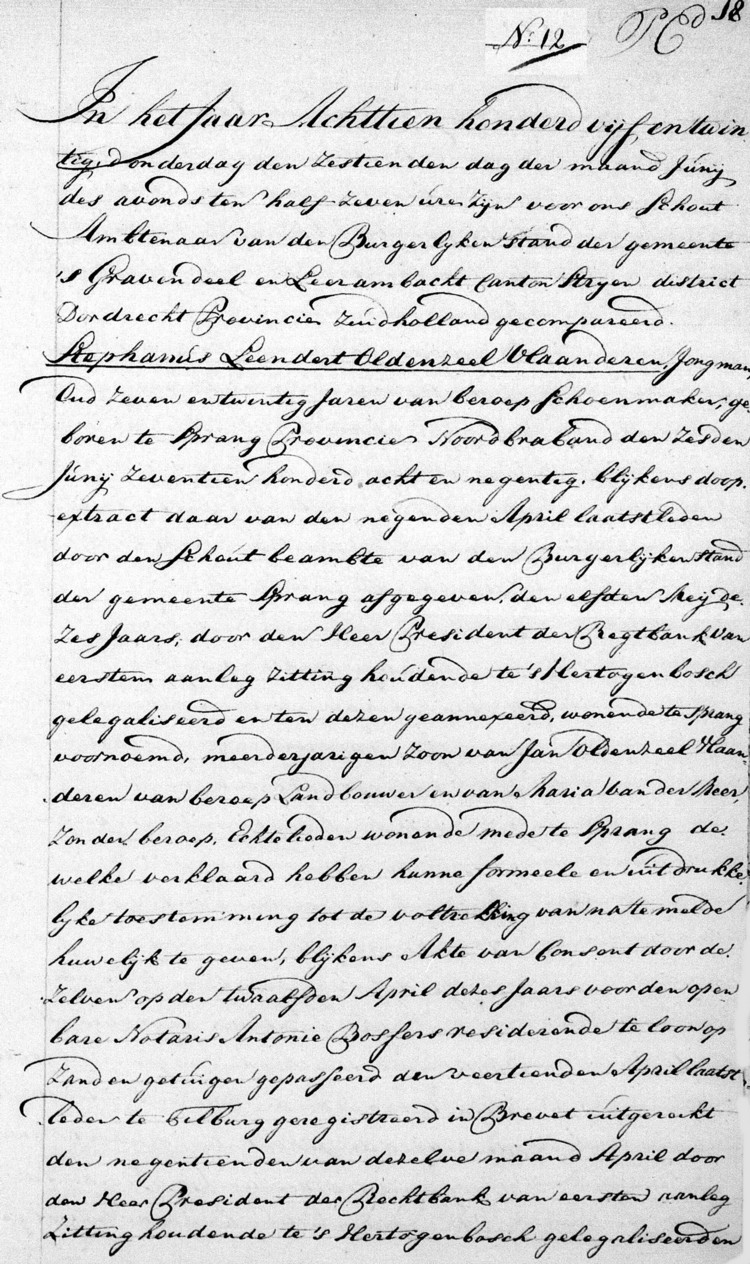 18
N:o 12
In het Jaar Achttien honderd vijf en twin
tig, Donderdag den Zestienden dag der maand Junij
des avonds ten half zeven ure zijn voor ons Schout
Ambtenaar van den Burgerlyken Stand der gemeente
's Gravendeel en Leerambacht Canton Stryen district
Dordrecht Provincie Zuidholland gecompareerd.
Stephanus Leendert Oldenzeel Vlaanderen, Jongman
Oud Zeven en twentig Jaren van beroep Schoenmaker, ge
boren te Sprang Provincie Noordbraband den Zesden
Junij Zeventien honderd acht en negentig, blijkens doop,
extract daar van den negenden April laatstleden
door den Schout beambte van den Burgerlijken Stand
der gemeente Sprang afgegeven, den elfden Meij de,
Zes Jaars, door den Heer President der Regtbank van
eersten aanleg Zitting houdende te 's Hertogenbosch
gelegaliseerd en ten dezen geannexeerd, wonende te Sprang
voornoemd, meerderjarigen Zoon van Jan Oldenzeel Vlaan,
deren van beroep Landbouwer en van Maria van der Meer,
Zonder beroep, Echtelieden wonende mede te Sprang de
welke verklaard hebben hunne formeele en uitdrukke,
lyke toestemming tot de voltrekking van na te melde
huwelijk te geven, blijkens Akte van Consent door de
Zelven op den twaalfden April dezes Jaars voor den open
bare Notaris Antonie Bossers resideerende te loon op
Zand en getuigen gepasseerd den veertienden April laatst
leden te Tilburg geregistreerd in Brevet uitgereikt
den negentienden van dezelve maand April door
den Heer President der Rechtbank van eersten aanleg
Zitting houdende te 's Hertogenbosch gelegaliseerden